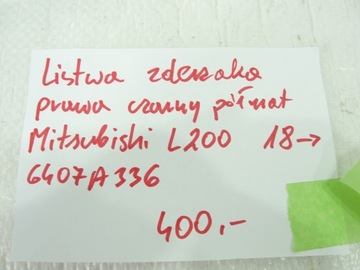 Listwa zderzaka
prawa czarny półmat
Mitsubishi L200 18→
6407A336
400,-